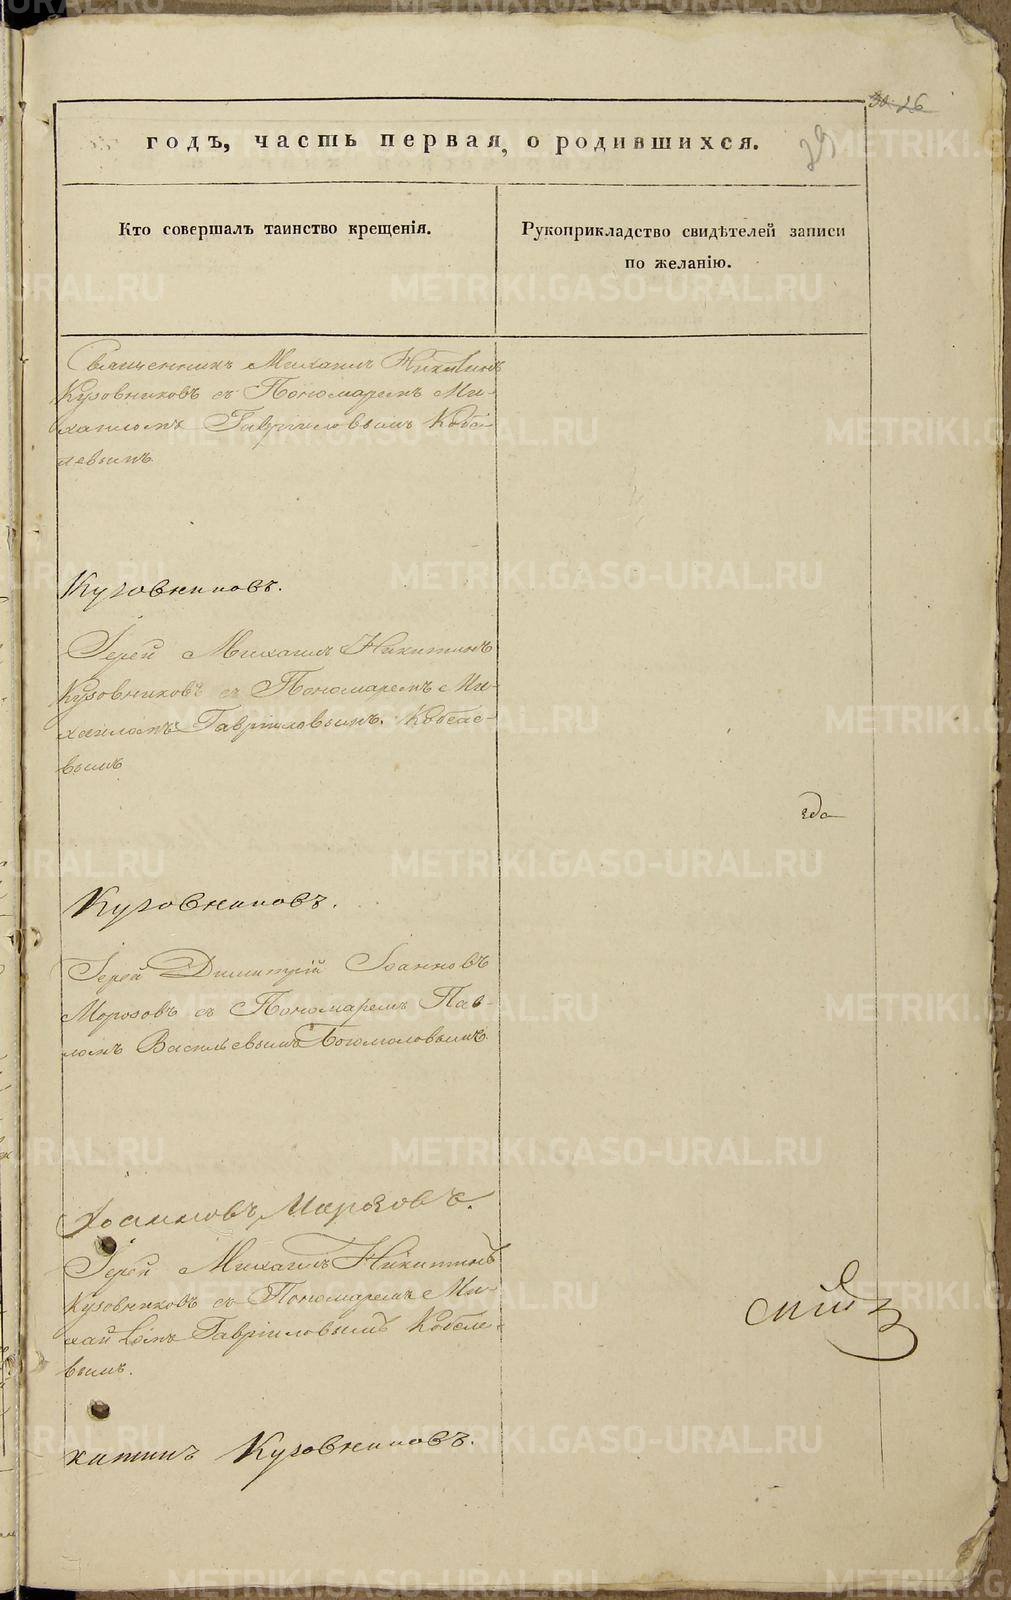 30 26
29
годъ, часть первая, о родившихся.
Кто совершалъ таинство крещенія.
Рукоприкладство свидѣтелей записи
по желанію.
Священникъ Михаилъ Никитинъ
Кузовниковъ съ Пономаремъ Ми-
хаиломъ Гавріиловымъ Кобе-
левымъ
Кузовниковъ.
Іерей Михаилъ Никитинъ
Кузовниковъ съ Пономаремъ Ми-
хаиломъ Гавріиловымъ Кобеле-
вымъ
Кузовниковъ.
Іерей Димитрій Іоанновъ
Морозовъ съ Пономаремъ Пав-
ломъ Васильевымъ Богомоловымъ
Іоанновъ Марозовъ.
Іерей Михаилъ Никитинъ
Кузовниковъ съ Пономаремъ Ми-
хаиломъ Гавріиловымъ Кобеле-
вымъ.
китинъ Кузовниковъ.
METRIKI.GASO-URAL.RU